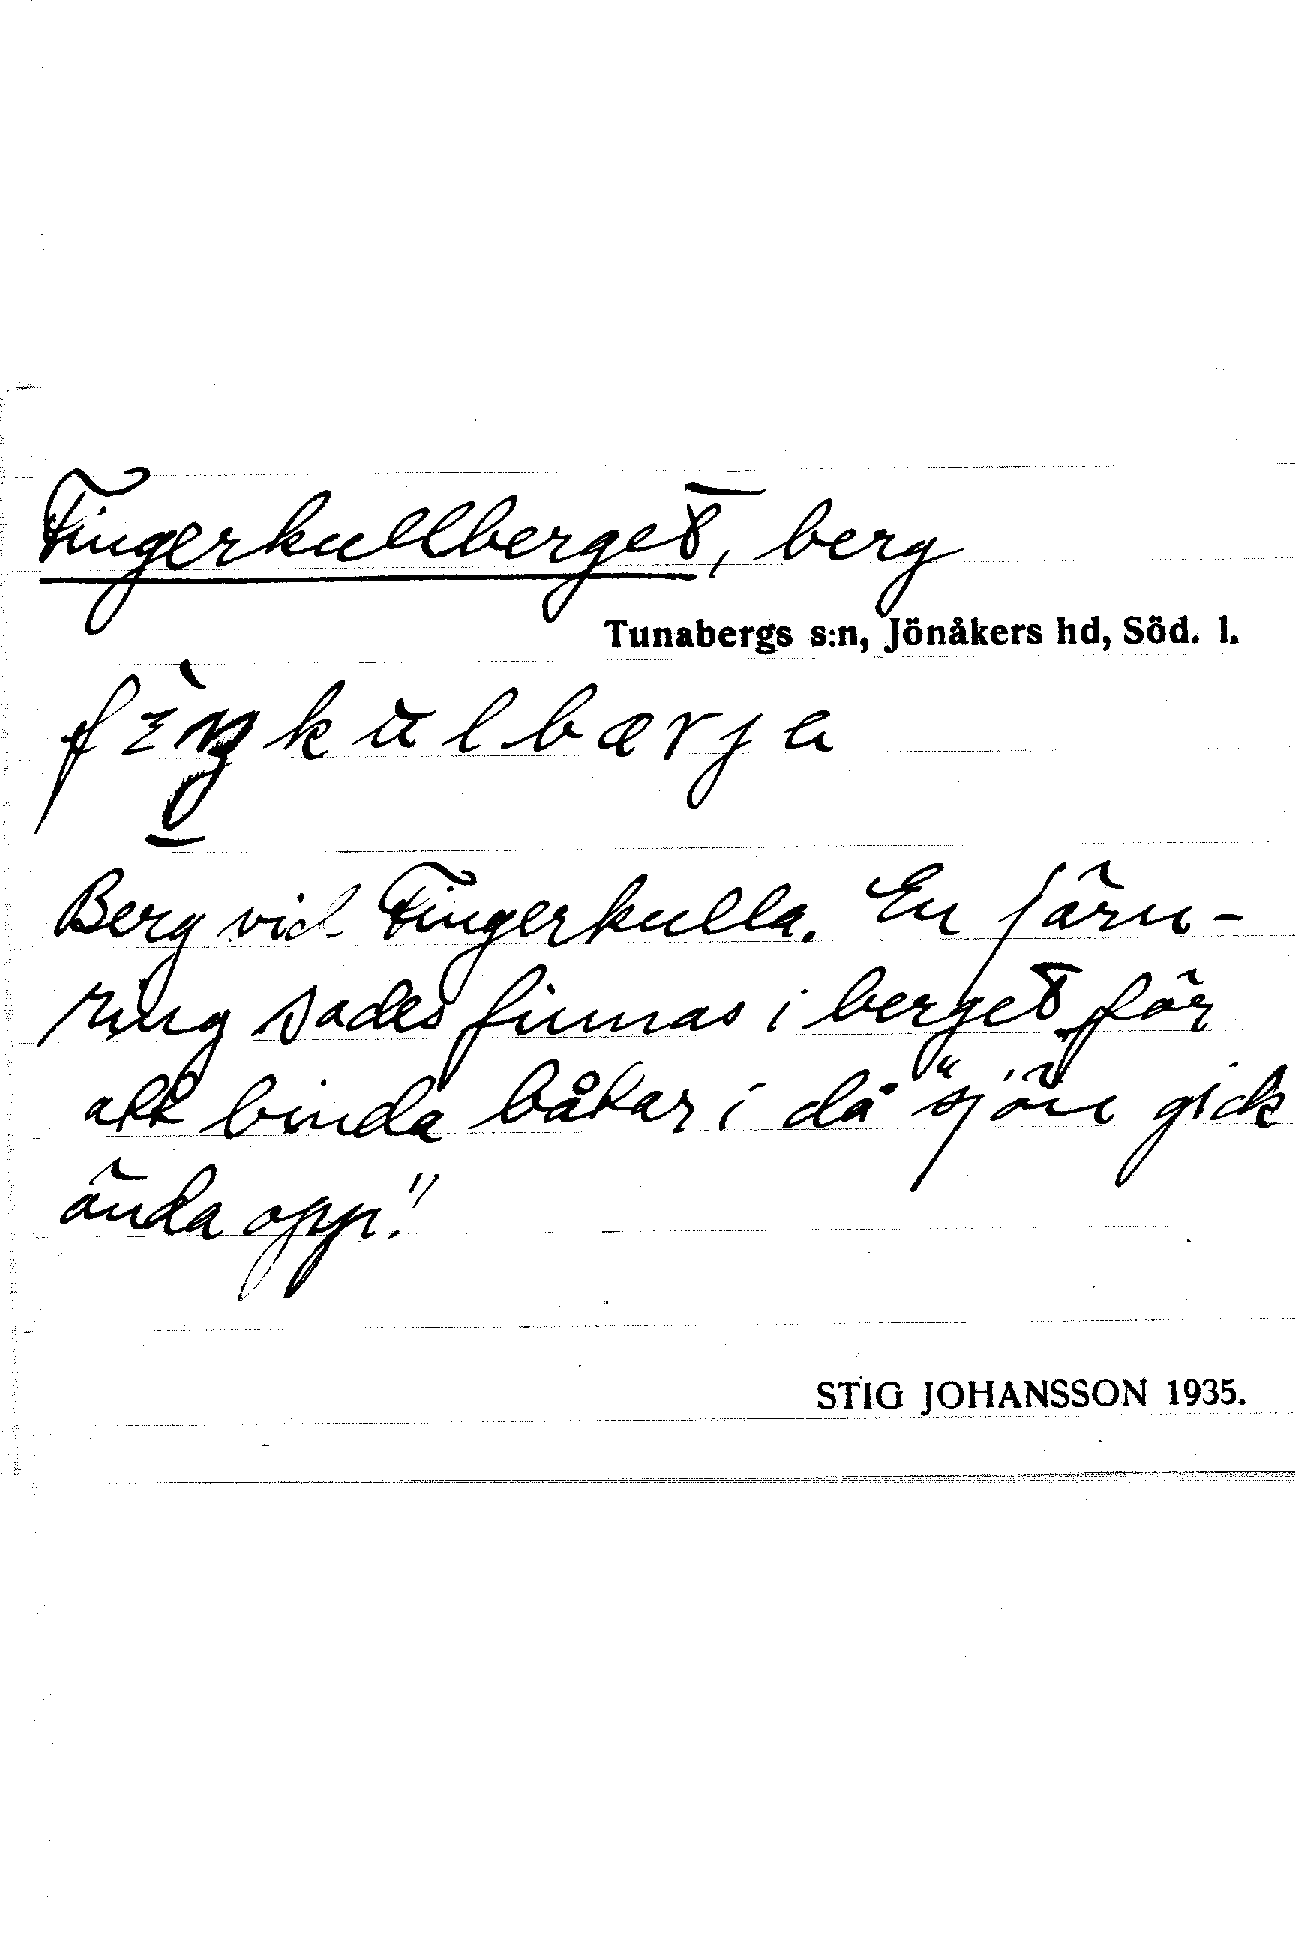 Fingerkullberget, berg
Tunabergs s:n, Jönåkers hd, Söd. l.
Berg vid Fingerkulla. En järn-
ring sades finnas i berget för
att binda båtar i då "sjön gick
ända opp."
STIG JOHANSSON 1935.